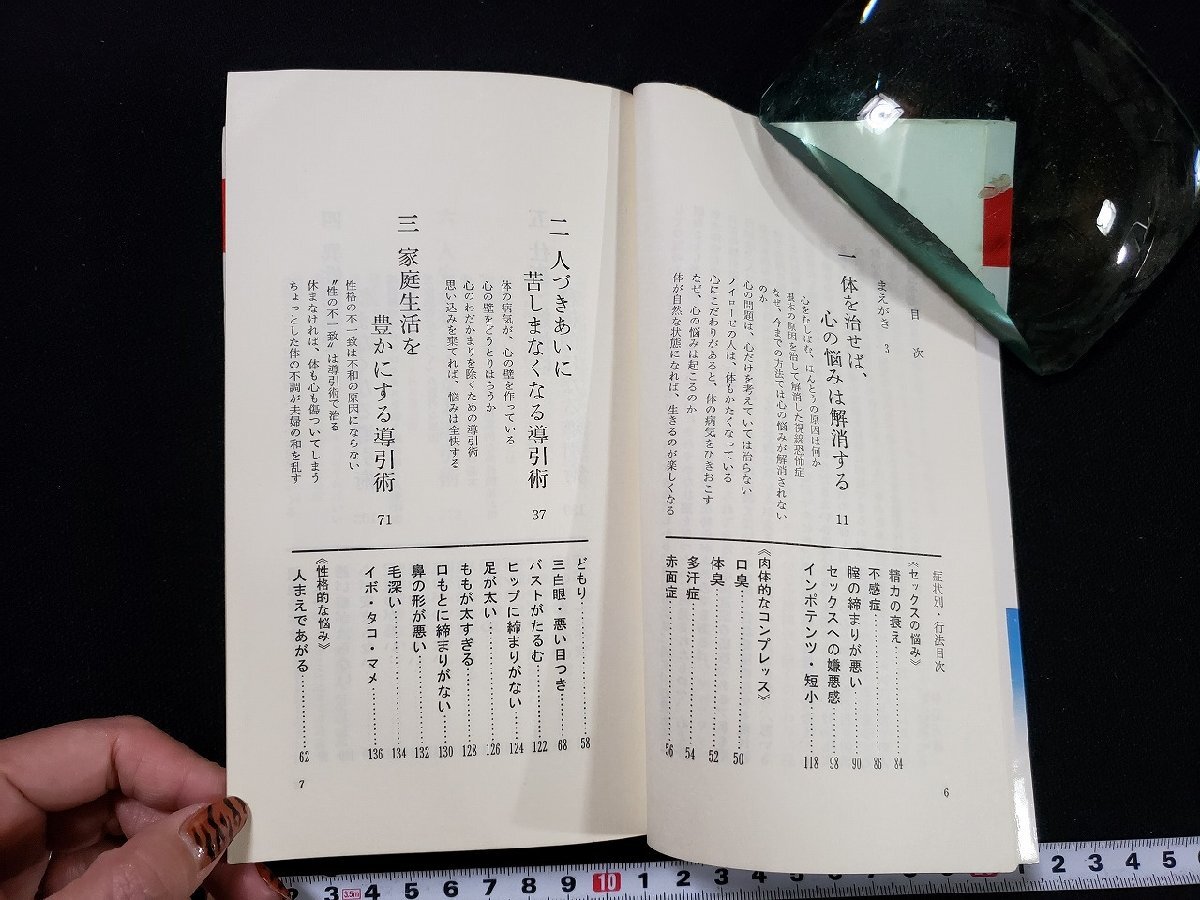 目次
まえがき 3
一 体を治せば、
心の悩みは解消する 11
心をむしばむ、ほんとうの原因は何か
基本の原因を治して解消した視線恐怖症
なぜ、今までの方法では心の悩みが解消されない
のか
心の問題は、心だけを考えていては治らない
ノイローゼの人は、体もかたくなっている
心にこだわりがあると、体の病気をひきおこす
なぜ、心の悩みは起こるのか
体が自然な状態になれば、生きるのが楽しくなる
症状別・行法目次
《セックスの悩み》
精力の衰え……84
不感症……86
膣の締まりが悪い……90
セックスへの嫌悪感……98
インポテンツ・短小……118
《肉体的なコンプレックス》
口臭……50
体臭……52
多汗症……54
赤面症……56
6
二 人づきあいに
苦しまなくなる導引術 37
体の病気が、心の壁を作っている
心の壁をどうとりはらうか
心のわだかまりを除くための導引術
思い込みを棄てれば、悩みは全快する
三 家庭生活を
豊かにする導引術 71
性格の不一致は不和の原因にならない
“性の不一致”は導引術で治る
休まなければ、体も心も傷ついてしまう
ちょっとした体の不調が夫婦の和を乱す
どもり……58
三白眼・悪い目つき……68
バストがたるむ……122
ヒップに締まりがない……124
足が太い……126
ももが太すぎる……128
口もとに締まりがない……130
鼻の形が悪い……132
毛深い……134
イボ・タコ・マメ……136
《性格的な悩み》
人まえであがる……62
7
2 3 3.5m 4 5 6 7 8 9 10 1 2 3 4 5 6 7 8 9 1 2 3 4 5 6